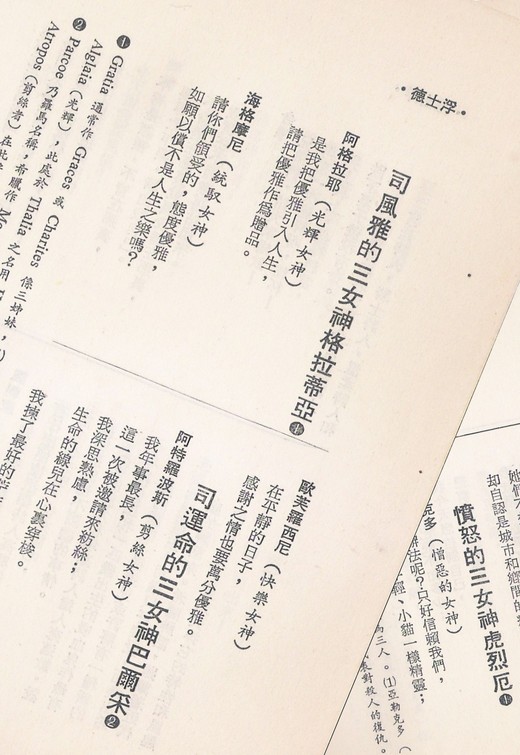 •浮士德•
司風雅的三女神格拉蒂亞❶
阿格拉耶(光輝女神)
是我把優雅引入人生，
請把優雅作爲贈品。
海格摩尼(統馭女神)
請你們領受的，態度優雅，
如願以償不是人生之樂嗎？
❶ Gratia 通常作 Graces 或 Charites 係三姊妹，
Alglaia (光輝)，此處於 Thalia 之名用
❷ Parcoe 乃羅馬名稱，希臘作
Atropos (剪綠者)在此
歐芙羅西尼(快樂女神)
在平靜的日子，
感謝之情也要萬分優雅。
司運命的三女神巴爾采❷
阿特羅波斯(剪綠女神)
我年事最長，
這一次被邀請來紡綠；
我深思熟慮，
生命的線兒在心裏穿梭。
我揀了最好的
她們
却自認是城市和鄉間的
憤怒的三女神虎烈厄❶
克多(憎惡的女神)
辦法呢？只好信賴我們，
輕、小貓一樣精靈；
三人。(1)亞勒克多(
對殺人的復仇。